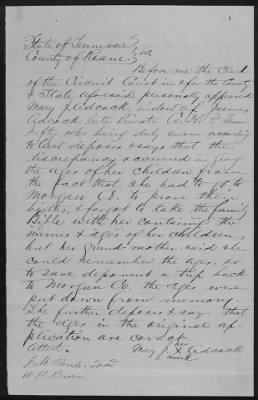 State of Tennessee }
County of Roane } ss.
Before me the Clerk
of the Circuit Court in & for the County
& State aforesaid personally appeared
Mary J. Adcock, widow of James
Adcock, late Private Co. H. 5 Tenn
Infty, who being duly sworn according
to law deposes & says that the
discrepancy occurred in giving
the ages of her children from
the fact that she had to go to
Morgan Co. to prove their
births, & forgot to take the family
Bible with her containing the
names & ages of her children,
but her Grand mother said she
could remember the ages, so
to save deponent a trip back
to Morgan Co. the ages were
put down from memory.
She further deposes & says that
the ages in the original ap-
plication are correct.
Attest. Mary J. her X mark Adcock